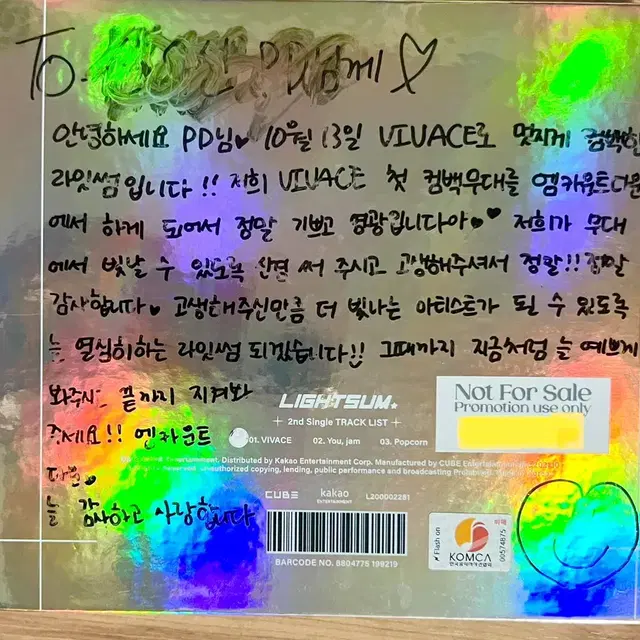 To. PD님께 ♡
안녕하세요 PD님♥ 10월 13일 VIVACE로 멋지게 컴백한
라잇썸입니다!! 저희 VIVACE 첫 컴백무대를 엠카운트다운
에서 하게 되어서 정말 기쁘고 영광입니다아♥♥ 저희가 무대
에서 빛날 수 있도록 신경 써 주시고 고생해주셔서 정말!! 정말
감사합니다♥ 고생해주신만큼 더 빛나는 아티스트가 될 수 있도록
늘 열심히하는 라잇썸 되겠습니다!! 그때까지 지금처럼 늘 예쁘게
봐주시고 끝까지 지켜봐
주세요!! 엠카운트
다운♥
늘 감사하고 사랑합니다
LIGHTSUM
2nd Single TRACK LIST
01. VIVACE 02. You, jam 03. Popcorn
Entertainment. Distributed by Kakao Entertainment Corp. Manufactured by CUBE Entertainment
Reserved. Unauthorized copying, lending, public performance and broadcasting Prohibited.
CUBE kakao ENTERTAINMENT L200002281
BARCODE NO. 8804775 199219
Not For Sale
Promotion use only
Flash on
KOMCA
한국음악저작권협회
00574875